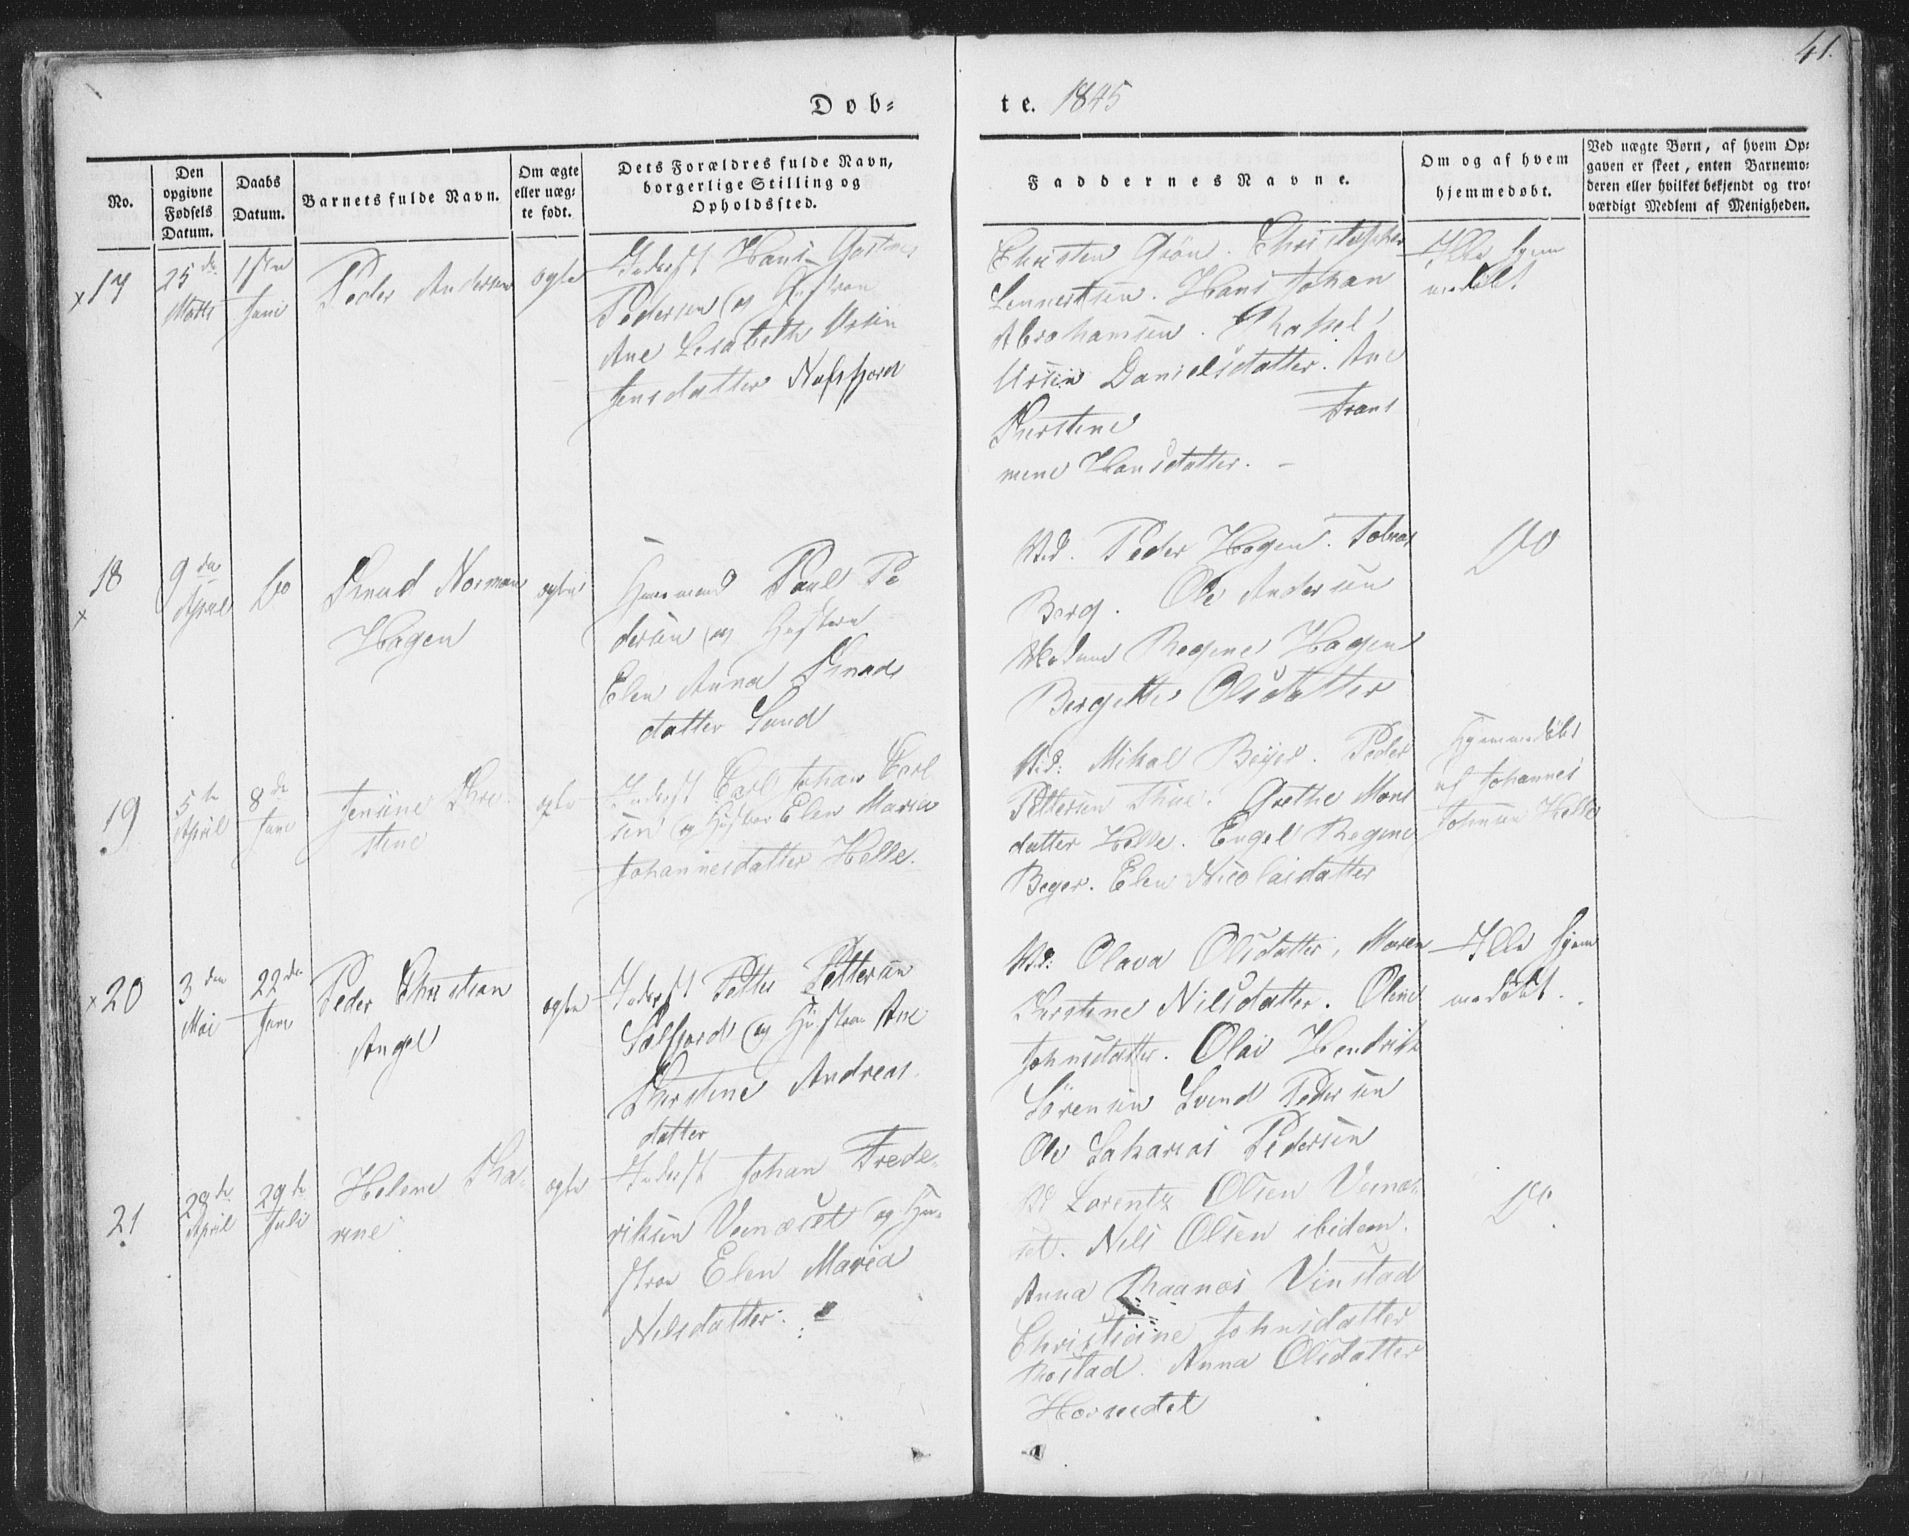 41.
Døb=
te. 1845
No.
Den opgivne Fødsels Datum.
Daabs Datum.
Barnets fulde Navn.
Om ægte eller uægte født.
Dets Forældres fulde Navn, borgerlige Stilling og Opholdssted.
Faddernes Navne.
Om og af hvem hjemmedøbt.
Ved uægte Børn, af hvem Op=
gaven er skeet, enten Barnemo=
deren eller hvilket bekjendt og tro=
værdigt Medlem af Menigheden.
x 17
25 de
Marts
1ste
Juni
Peder Andersen
ægte
Inderst Hans
Pedersen og Hustrue
Ane Lisabeth Ursin
Jensdatter
Christen Grön. Christopher
Lennertsen. Hans Johan
Abrahamsen.
Ursin Danielsdatter. Ane
Kirstine
Hansdatter.
Ikke hjem
medöbt
18
x
9 de
April
Do
Knud Norman
Hagen
ægte
Huusmand Paul Pe
dersen og Hustrue
Elen Anna Knuds
datter Sund
Ved. Peder Hagen. Tobias
Berg. Ole Andersen
Madame Regine Hagen
Bergitte Olsdatter
Do
19
5te
April
8de
Juni
Jensine Kri
stine
ægte
Inderst Carl Johan Carl
sen og Hustroe Elen Maria
Johannesdatter Helle.
Ved: Mikal Beyer. Peder
Pettersen Grethe Mons
datter Helle. Engel Regine
Beyer. Elen Nicolaidatter
Hjemmedöbt
af Johannes
Johnsen Helle
x 20
3 den
Mai
22 de
Juni
Peder Christian
Angel
ægte
Inderst Petter Pettersen
og Hustroe Ane
Kirstine Andreas
datter
Ved: Olava Olsdatter, Maren
Kirstine Nilsdatter. Oline
Johnsdatter. Olai Hendrik
Sörensen Svend Pedersen
Ole Zakarias Pedersen
Ikke hjem
medöbt.
21
28 de
April
29 de
Juli
Helene Ka
rine
ægte
Inderst Johan Frede
riksen og Hu
stroe Elen Maria
Nilsdatter.
Ved Lorentz Olsen
Nils Olsen ibidem.
Anna Raanes Vinstad
Christine Johnsdatter
Rostad. Anna Olsdatter
Do